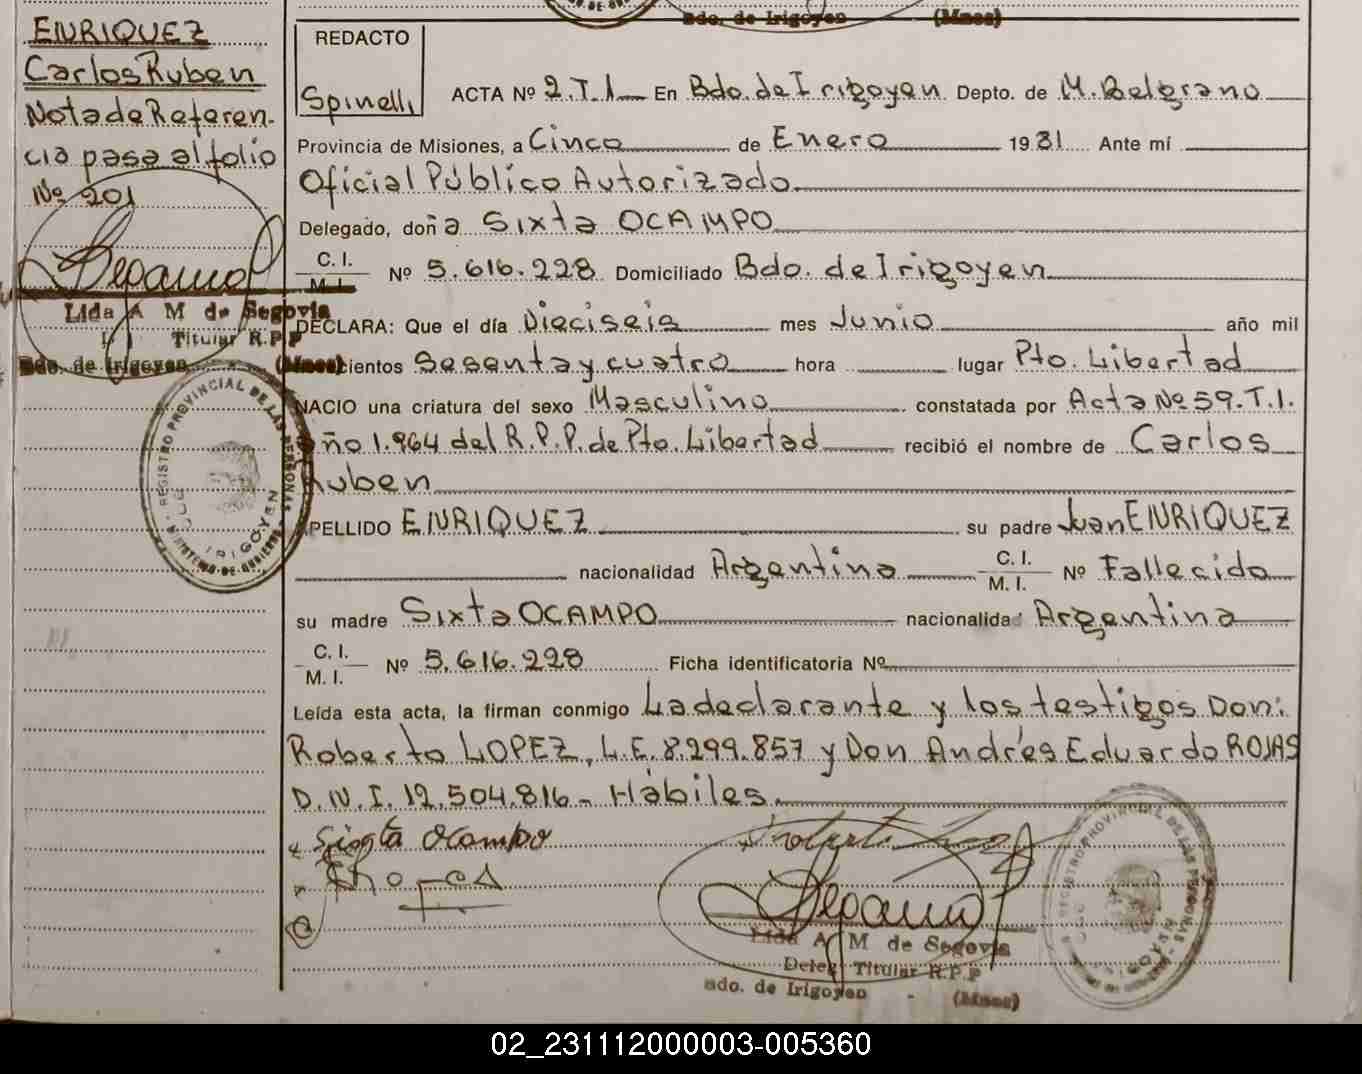 Bdo. de Irigoyen (Mnes)
ENRIQUEZ
Carlos Ruben
Nota de Referen-
cia pasa al folio
Nº 201
Lida A M de Segovia
Titular R.P.P
Bdo. de Irigoyen (Mnes)
REGISTRO PROVINCIAL DE LAS PERSONAS
IRIGOYEN
MINISTERIO DE GOBIERNO
REDACTO
Spinelli
ACTA Nº 2.T.1 En Bdo. de Irigoyen Depto. de M. Belgrano
Provincia de Misiones, a Cinco de Enero 1981 Ante mí
Oficial Público Autorizado
Delegado, doña Sixta OCAMPO
C. I.
M. I. Nº 5.616.228 Domiciliado Bdo. de Irigoyen
DECLARA: Que el día Dieciseis mes Junio año mil
cientos Sesenta y cuatro hora lugar Pto. Libertad
NACIO una criatura del sexo Masculino constatada por Acta Nº 59.T.1.
año 1.964 del R.P.P. de Pto. Libertad recibió el nombre de Carlos
Ruben
APELLIDO ENRIQUEZ su padre Juan ENRIQUEZ
nacionalidad Argentina C. I.
M. I. Nº Fallecido
su madre Sixta OCAMPO nacionalidad Argentina
C. I.
M. I. Nº 5.616.228 Ficha identificatoria Nº
Leída esta acta, la firman conmigo La declarante y los testigos Don:
Roberto LOPEZ, L.E. 8.299.857 y Don Andrés Eduardo ROJAS
D.N.I. 12.504.816 - Hábiles
Sixta Ocampo
Roberto
Lida A M de Segovia
Deleg Titular R.P.P
Bdo. de Irigoyen - (Mnes)
REGISTRO PROVINCIAL DE LAS PERSONAS
02_231112000003-005360